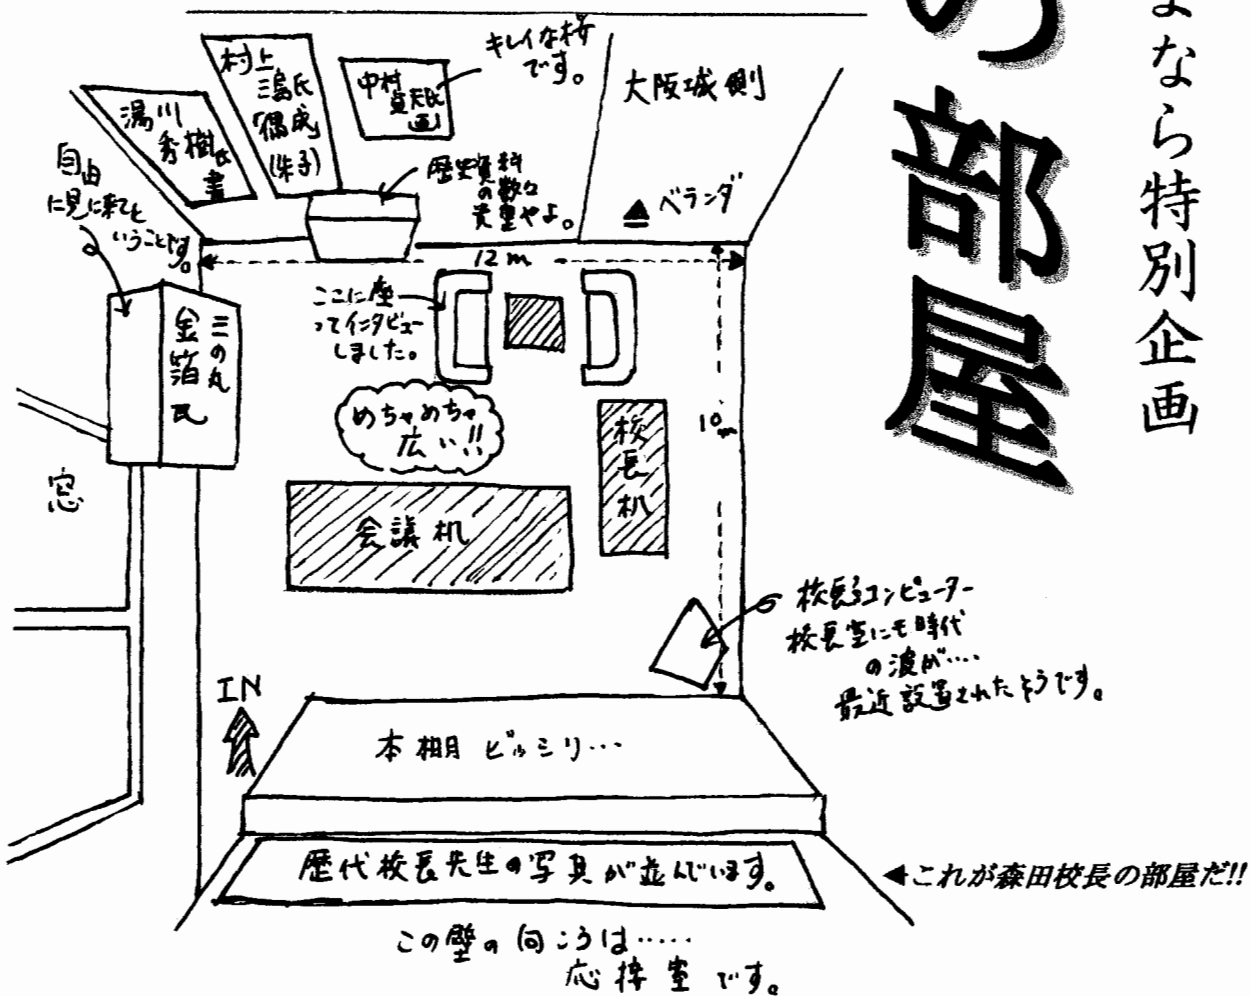 よなら特別企画
の部屋
キレイな桜
です。
中村
貞夫氏
画
村上
三島氏
「偶成」
(朱子)
湯川
秀樹氏
書
大阪城側
ベランダ
歴史資料
の数々
貴重やよ。
自由
に見に来てと
いうことです。
三の丸
金箔瓦
12m
ここに座
ってインタビュー
しました。
めちゃめちゃ
広い!!
10m
校長机
会議机
窓
校長コンピューター
校長室にも時代
の波が….
最近設置されたそうです。
IN
本棚ビッシリ…
歴代校長先生の写真が並んでいます。
◀これが森田校長の部屋だ!!
この壁の向こうは……
応接室です。